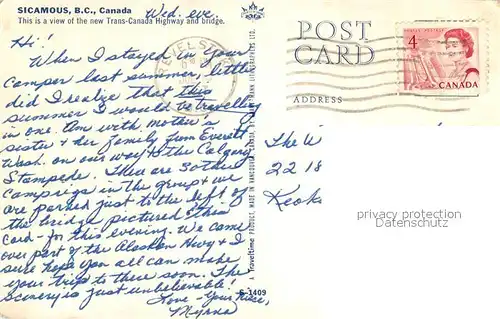 SICAMOUS, B.C., Canada
This is a view of the new Trans-Canada Highway and bridge.
Wed. eve.
Hi!
When I stayed in your
camper last summer, little
did I realize that this
summer I would be travelling
in one. Am with mother's
sister & her family from Everett
Wash. on our way to the Calgary
Stampede. There are 3 other
campers in the group & we
are parked just to the left of
the bridge pictured this
card - for this evening. We came
over part of the Alaskan Hwy & I
sure hope you all can make
your trip to there soon. The
scenery is just unbelievable!
Love - Your Niece,
Myrna
A Traveltime PRODUCT, MADE IN VANCOUVER, CANADA, BY
LITHOGRAPHERS LTD.
S-1409
POST
CARD
ADDRESS
4
POSTES POSTAGE
CANADA
The W
22 18
Keok
privacy protection
Datenschutz